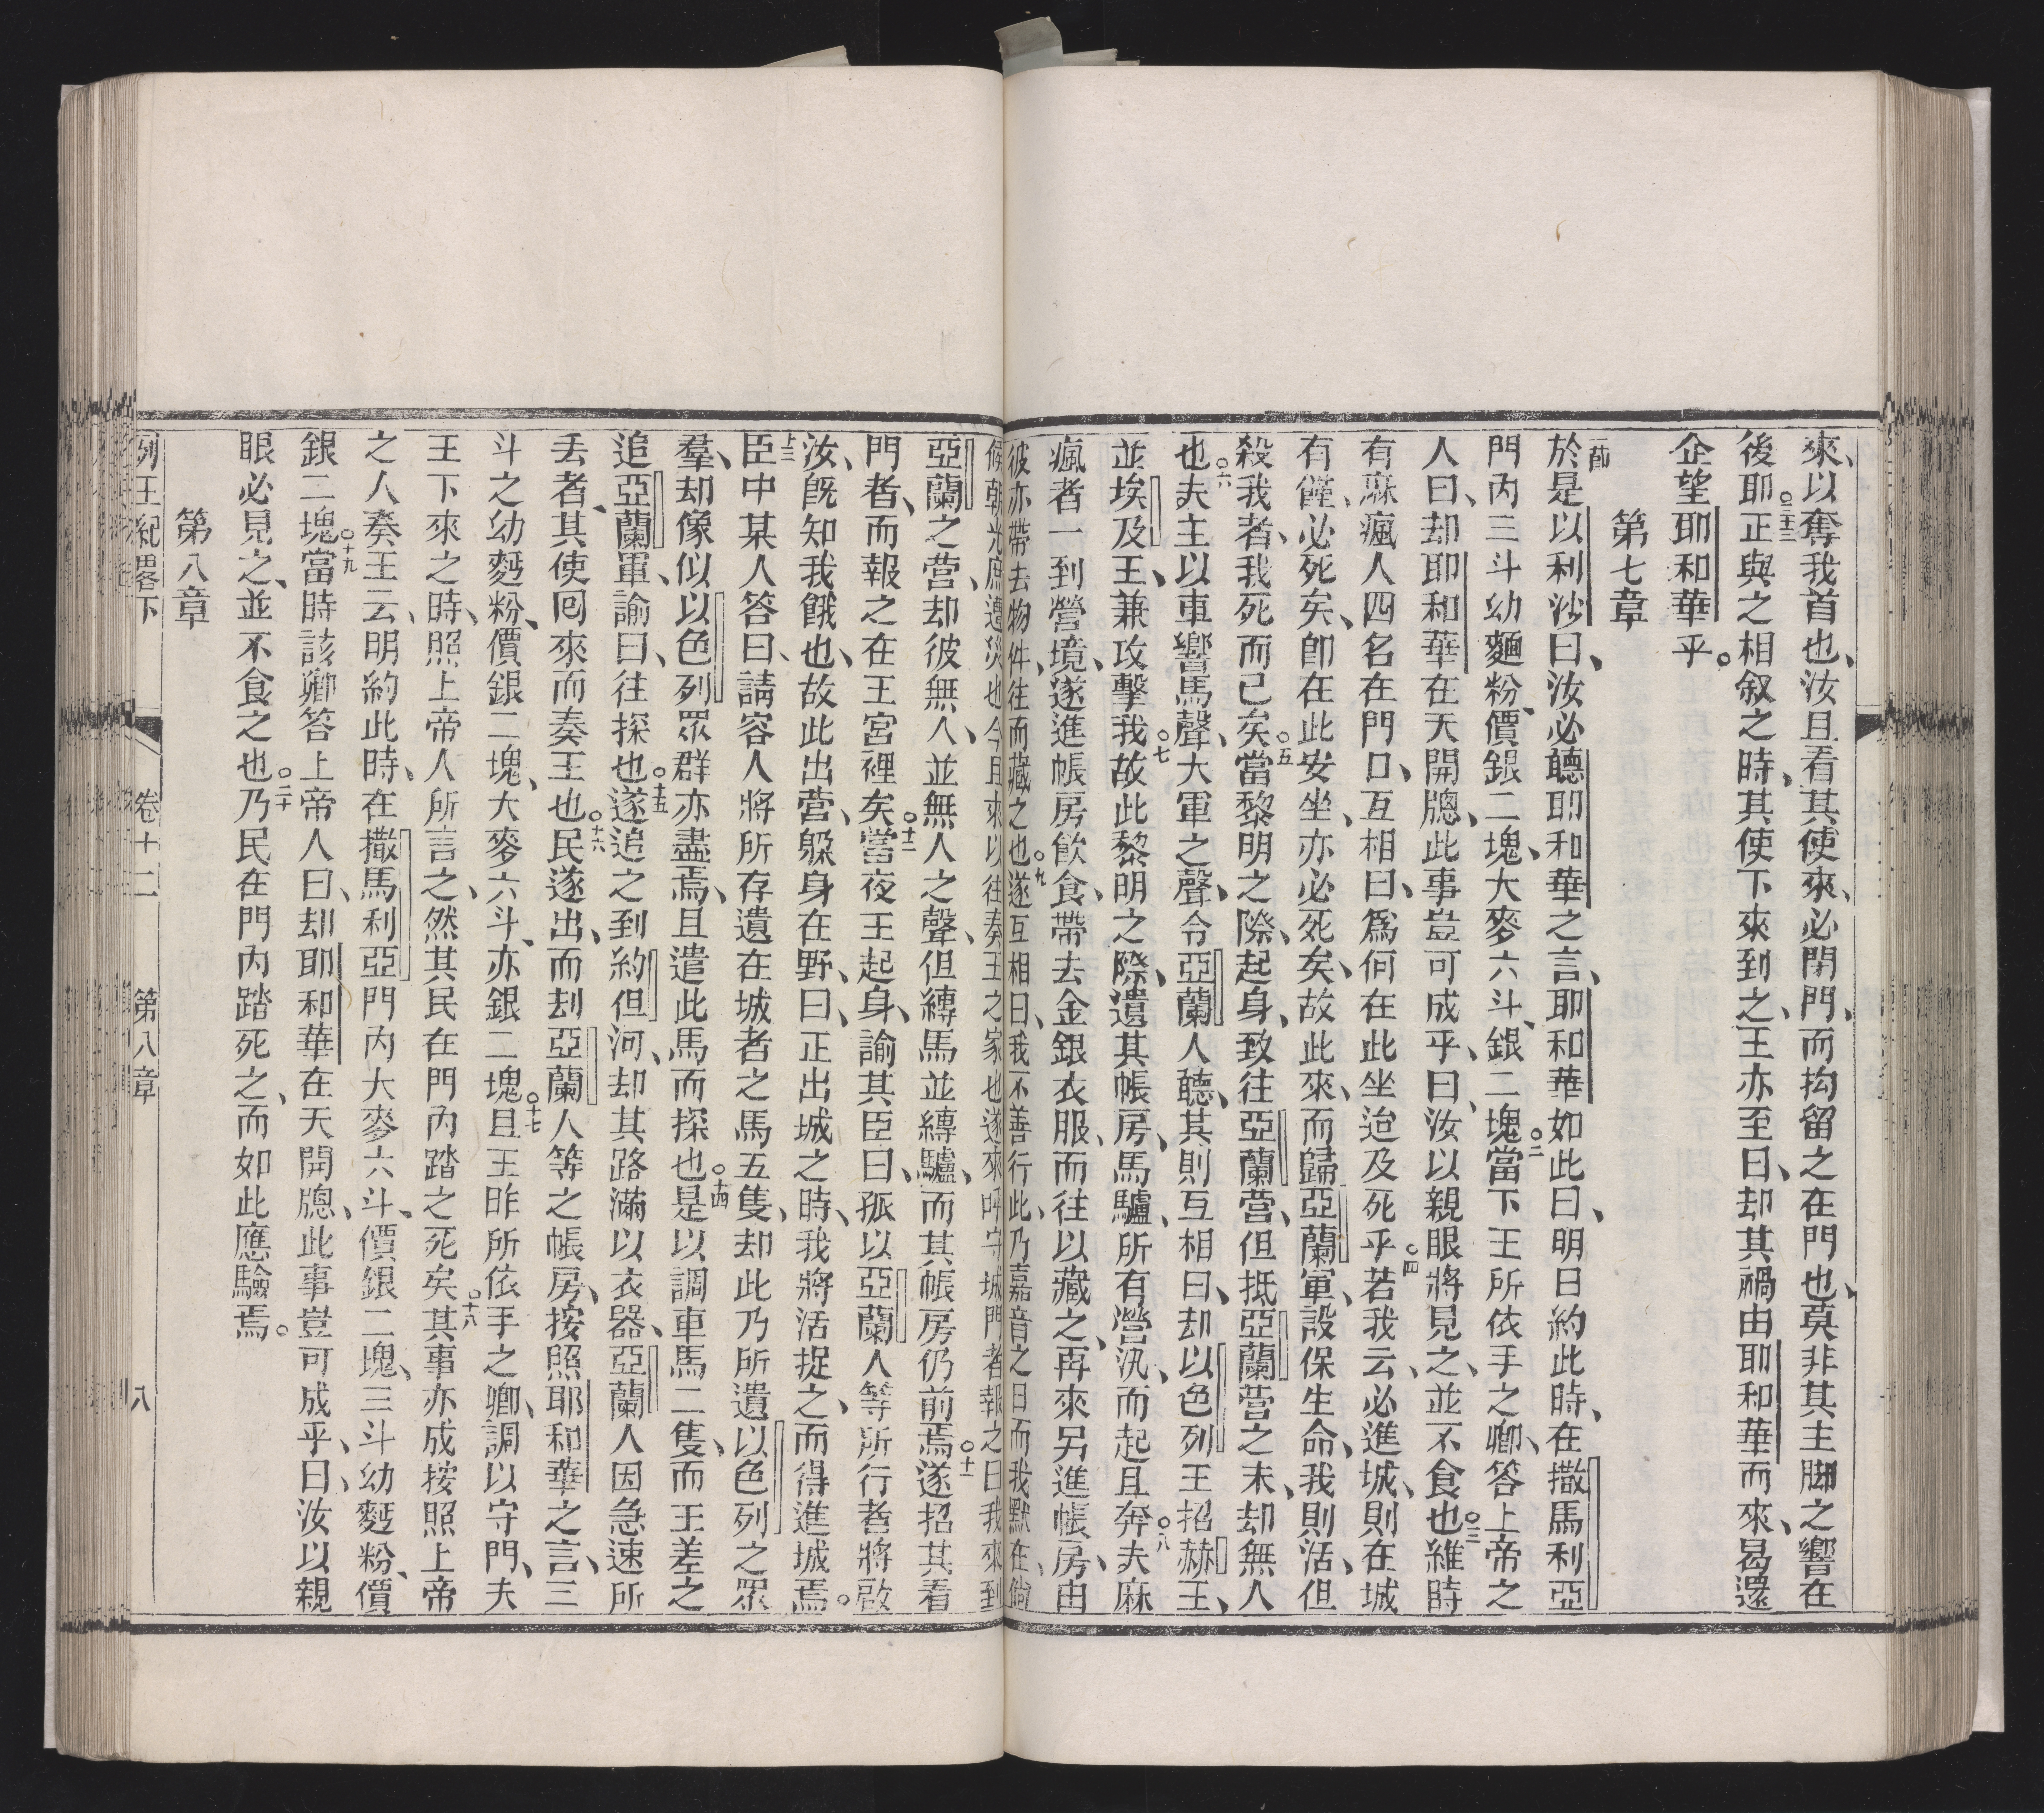 來、以奪我首也、汝且看其使來、必閉門、而拘留之在門也、莫非其主脚之響在
後耶○三三正與之相叙之時、其使下來到之、王亦至曰、却其禍由耶和華而來、曷還
企望耶和華乎。
第七章
一節於是以利沙曰、汝必聽耶和華之言、耶和華如此曰、明日約此時、在撒馬利亞
門內三斗幼麵粉、價銀二塊、大麥六斗、銀二塊○二當下王所依手之卿、答上帝之
人曰、却耶和華在天開牕、此事豈可成乎、曰、汝以親眼將見之、並不食也○三維時
有麻瘋人四名在門口、互相曰、爲何在此坐迨及死乎○四若我云、必進城、則在城
有僅、必死矣、卽在此安坐、亦必死矣、故此來、而歸亞蘭軍、設保生命、我則活、但
殺我者、我死而已矣○五當黎明之際、起身、致往亞蘭營、但抵亞蘭營之末、却無人
也○六夫主以車響馬聲、大軍之聲、令亞蘭人聽、其則互相曰、却以色列王招赫王、
並埃及王、兼攻擊我○七故此黎明之際、遺其帳房、馬驢、所有營汛、而起且奔○八夫麻
瘋者一到營境、遂進帳房飲食、帶去金銀衣服、而往以藏之、再來另進帳房、由
彼亦帶去物件、往而藏之也○九遂互相曰、我不善行此、乃嘉音之日而我默在、倘
候朝光、庶遭災也今且來以往奏王之家也遂來呼守城門者報之曰我來到
亞蘭之營、却彼無人、並無人之聲、但縛馬並縛驢、而其帳房仍前焉○十一遂招其看
門者、而報之在王宮裡矣○十二當夜王起身、諭其臣曰、孤以亞蘭人等所行者將啟
汝、旣知我餓也、故此出營、躱身在野、曰、正出城之時、我將活捉之、而得進城焉。
十三臣中某人答曰、請容人將所存遺在城者之馬五隻、却此乃所遺以色列之眾
羣、却像似以色列眾群亦盡焉、且遣此馬而探也○十四是以調車馬二隻、而王差之
追亞蘭軍、諭曰、往探也○十五遂追之到約但河、却其路滿以衣器、亞蘭人因急速所
丢者、其使囘來而奏王也○十六民遂出、而刦亞蘭人等之帳房、按照耶和華之言、三
斗之幼麪粉、價銀二塊、大麥六斗、亦銀二塊○十七且王昨所依手之卿、調以守門、夫
王下來之時、照上帝人所言之、然其民在門內踏之死矣○十八其事亦成按照上帝
之人奏王云、明約此時、在撒馬利亞門內大麥六斗、價銀二塊、三斗幼麪粉、價
銀二塊○十九當時該卿答上帝人曰、却耶和華在天開牕、此事豈可成乎、曰、汝以親
眼必見之、並不食之也○二十乃民在門內踏死之、而如此應驗焉。
第八章
列王紀畧下 卷十二 第八章 八